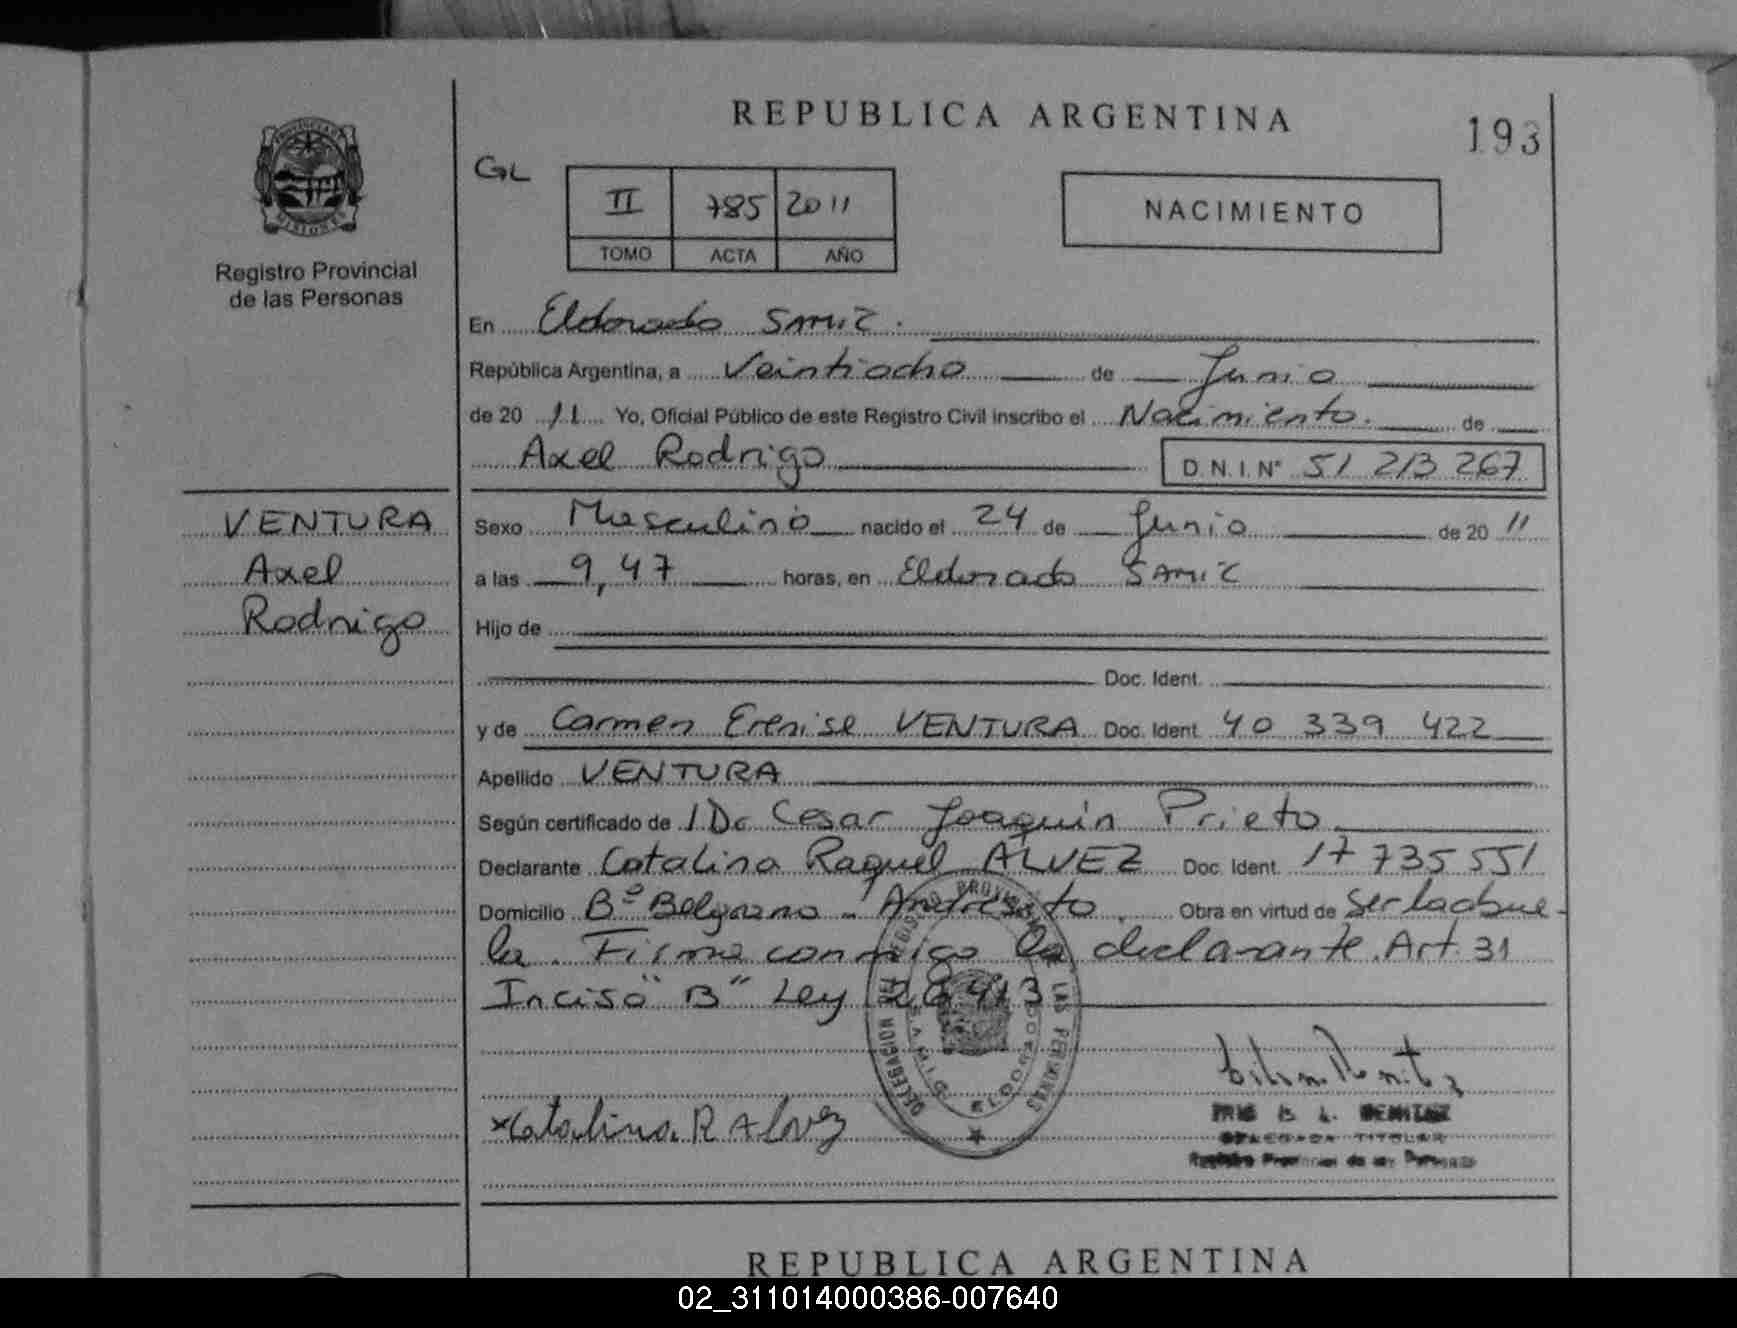 REPUBLICA ARGENTINA
193
PROVINCIA DE MISIONES
Registro Provincial
de las Personas
GL
II 785 2011
TOMO ACTA AÑO
NACIMIENTO
En Eldorado SAMIC.
República Argentina, a Veintiocho de Junio
de 20 11 Yo, Oficial Público de este Registro Civil inscribo el Nacimiento. de
Axel Rodrigo D.N.I.Nº 51 213 267
VENTURA
Axel
Rodrigo
Sexo Masculino nacido el 24 de Junio de 20 11
a las 9,47 horas, en Eldorado SAMIC
Hijo de
Doc. Ident.
y de Carmen Erenise VENTURA Doc. Ident. 40 339 422
Apellido VENTURA
Según certificado de 1 Dr Cesar Joaquín Prieto
Declarante Catalina Raquel ALVEZ Doc. Ident. 17 735 551
Domicilio Bº Belgrano - Andresito. Obra en virtud de Ser la abue-
la. Firma conmigo la declarante. Art. 31
Inciso "B" Ley 26413
DELEGACION DEL REGISTRO PROVINCIAL DE LAS PERSONAS
S.A.M.I.C. ELDORADO
xCatalina R Alvez
BENITEZ
DELEGADA TITULAR
Registro Provincial de las Personas
REPUBLICA ARGENTINA
02_311014000386-007640